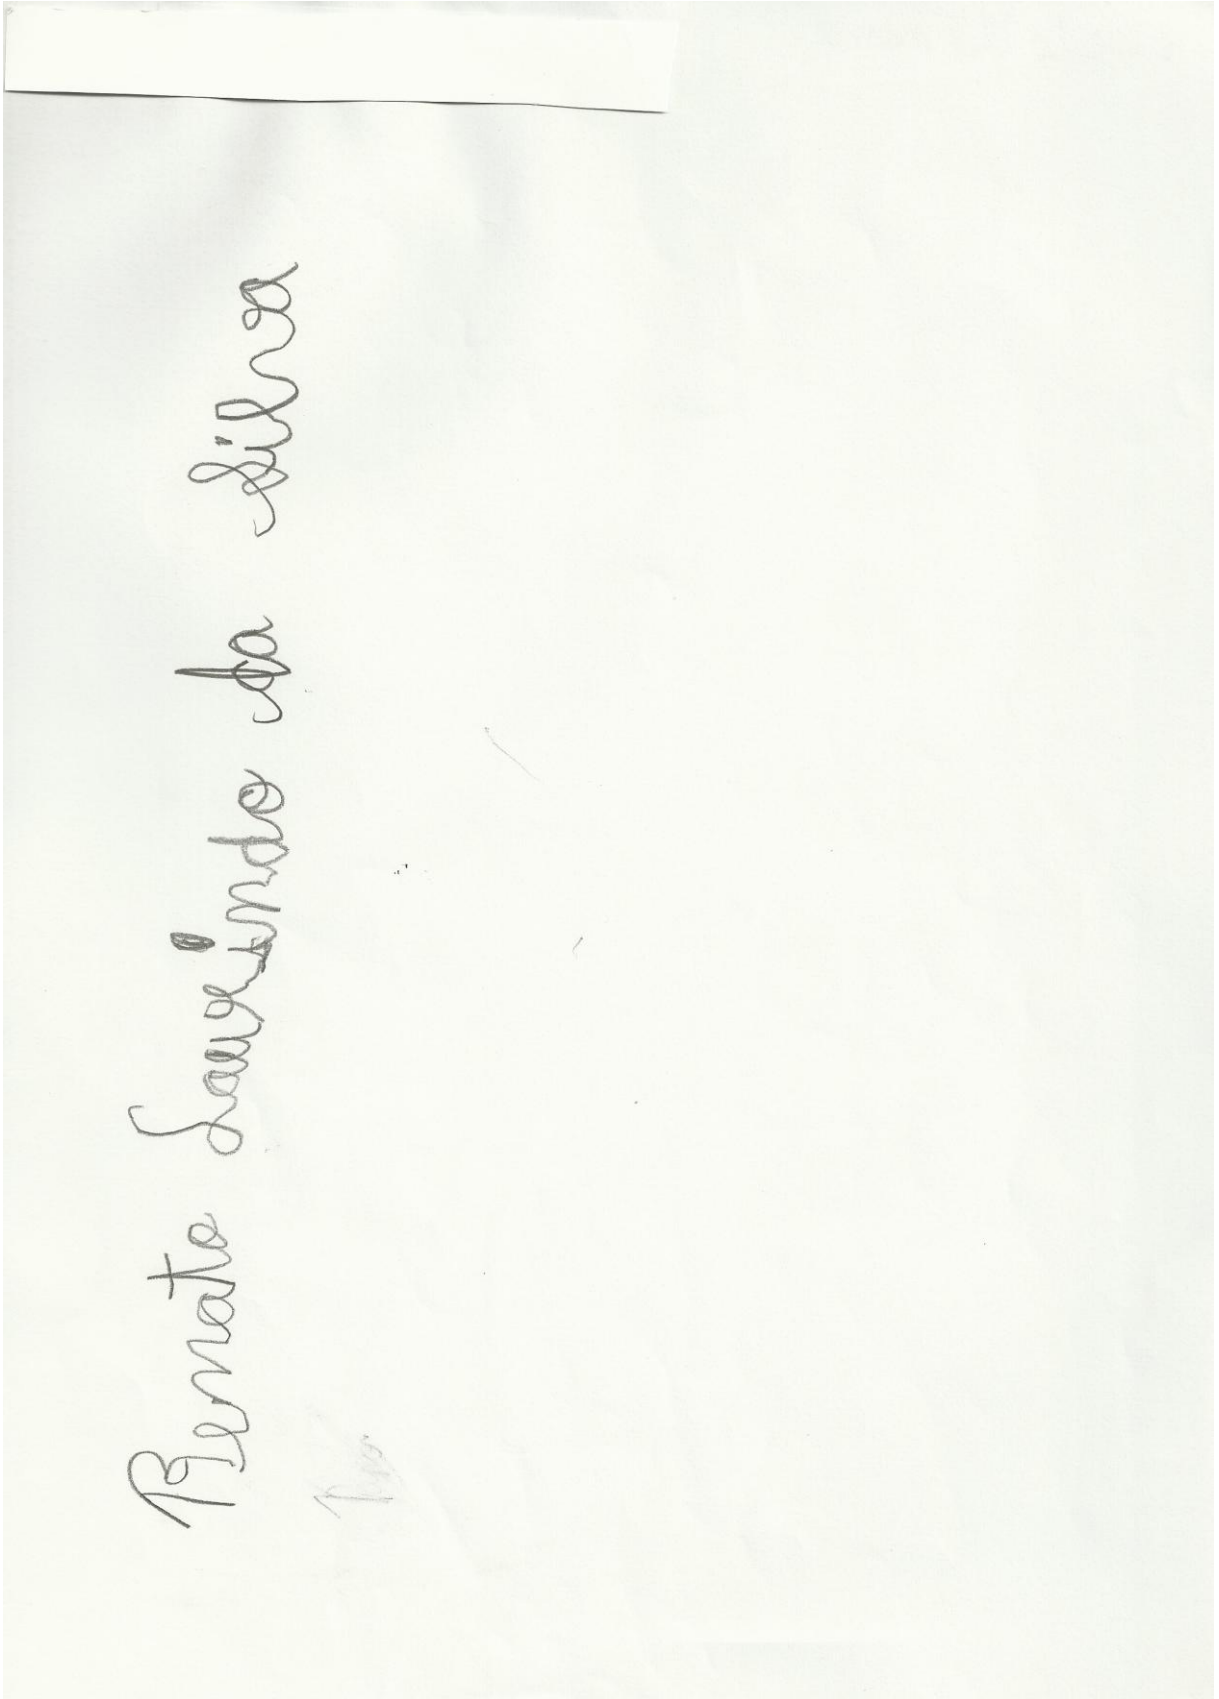 Renato Laurindo da silva